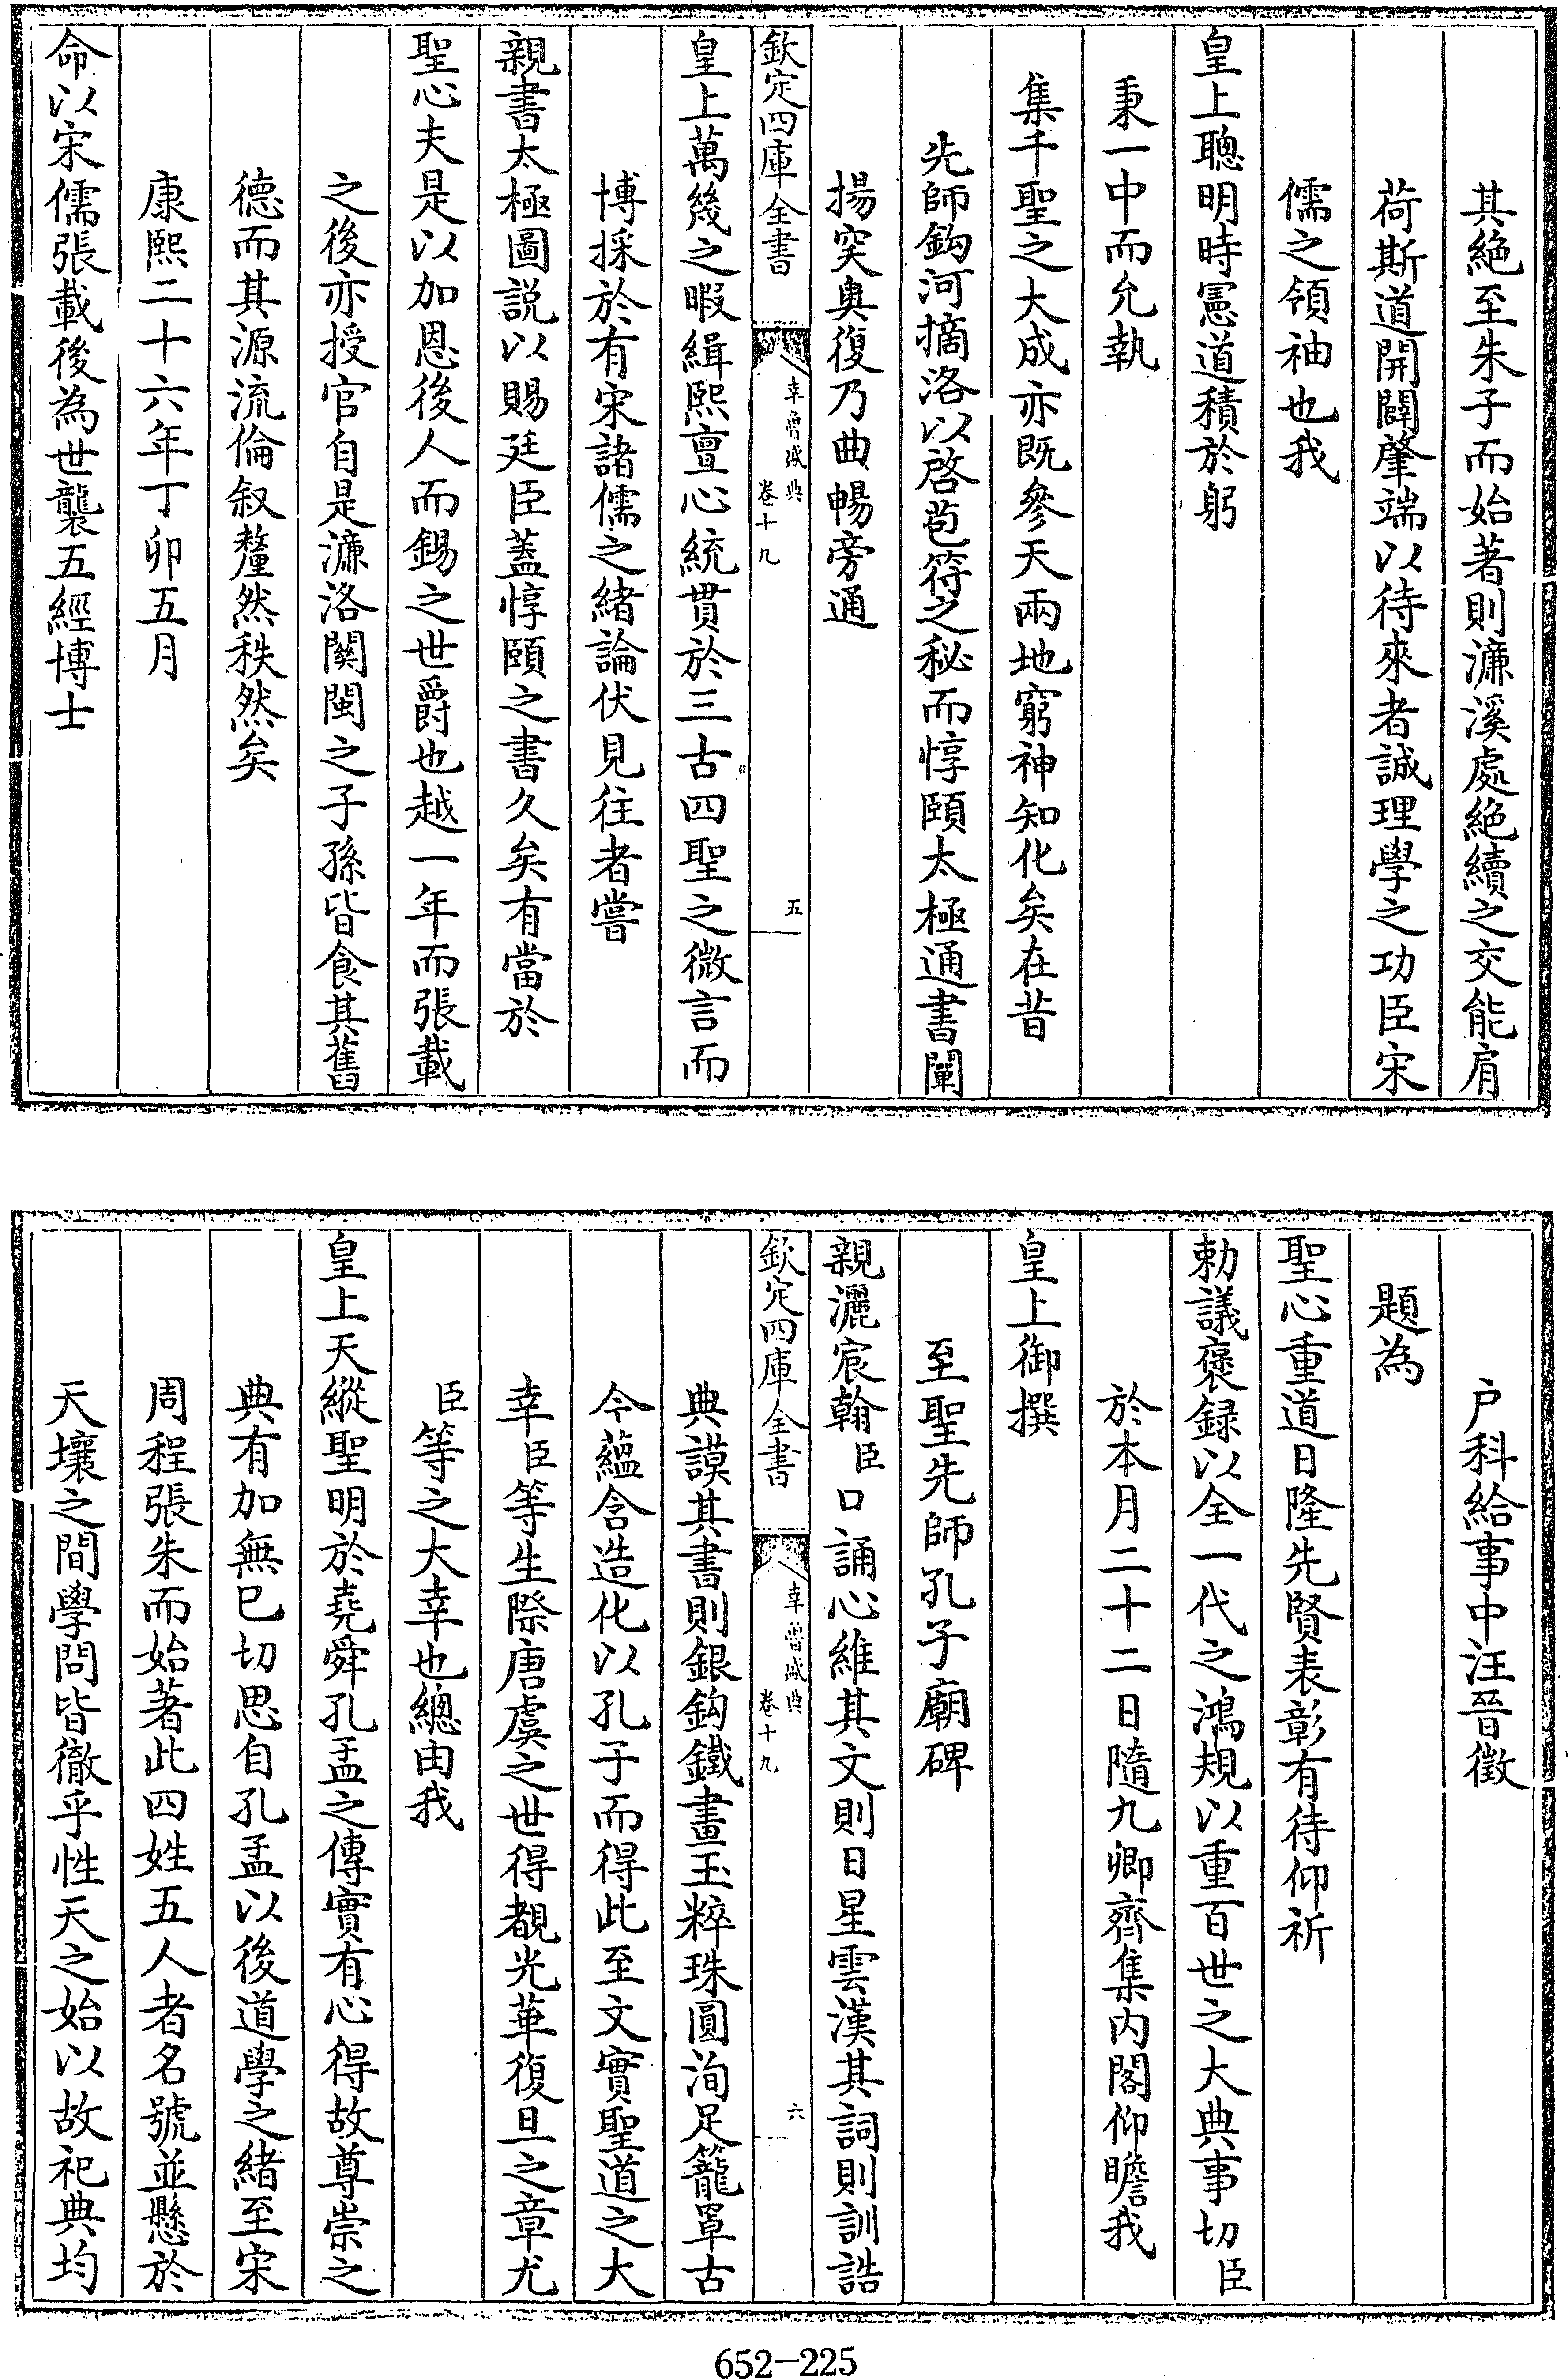 其絶至朱子而始著則濂溪處絶續之交能肩
荷斯道開闢肇端以待來者誠理學之功臣宋
儒之領袖也我
皇上聰明時憲道積於躬
秉一中而允執
集千聖之大成亦既參天兩地窮神知化矣在昔
先師鈎河摘洛以啓苞符之秘而惇頤太極通書闡
揚突奥復乃曲暢旁通
欽定四庫全書
幸魯盛典
卷十九
五
皇上萬幾之暇緝熙亶心統貫於三古四聖之微言而
博採於有宋諸儒之緒論伏見往者嘗
親書太極圖説以賜廷臣蓋惇頤之書久矣有當於
聖心夫是以加恩後人而錫之世爵也越一年而張載
之後亦授官自是濂洛關閩之子孫皆食其舊
德而其源流倫叙釐然秩然矣
康熙二十六年丁卯五月
命以宋儒張載後為世襲五經博士
户科給事中汪晉徵
題為
聖心重道日隆先賢表彰有待仰祈
勅議褒録以全一代之鴻規以重百世之大典事切臣
於本月二十二日隨九卿齊集内閣仰瞻我
皇上御撰
至聖先師孔子廟碑
親灑宸翰臣口誦心維其文則日星雲漢其詞則訓誥
欽定四庫全書
幸魯盛典
卷十九
六
典謨其書則銀鈎鐵畫玉粹珠圓洵足籠罩古
今蘊含造化以孔子而得此至文實聖道之大
幸臣等生際唐虞之世得覩光華復旦之章尤
臣等之大幸也總由我
皇上天縱聖明於堯舜孔孟之傳實有心得故尊崇之
典有加無已切思自孔孟以後道學之緒至宋
周程張朱而始著此四姓五人者名號並懸於
天壤之間學問皆徹乎性天之始以故祀典均
652-225